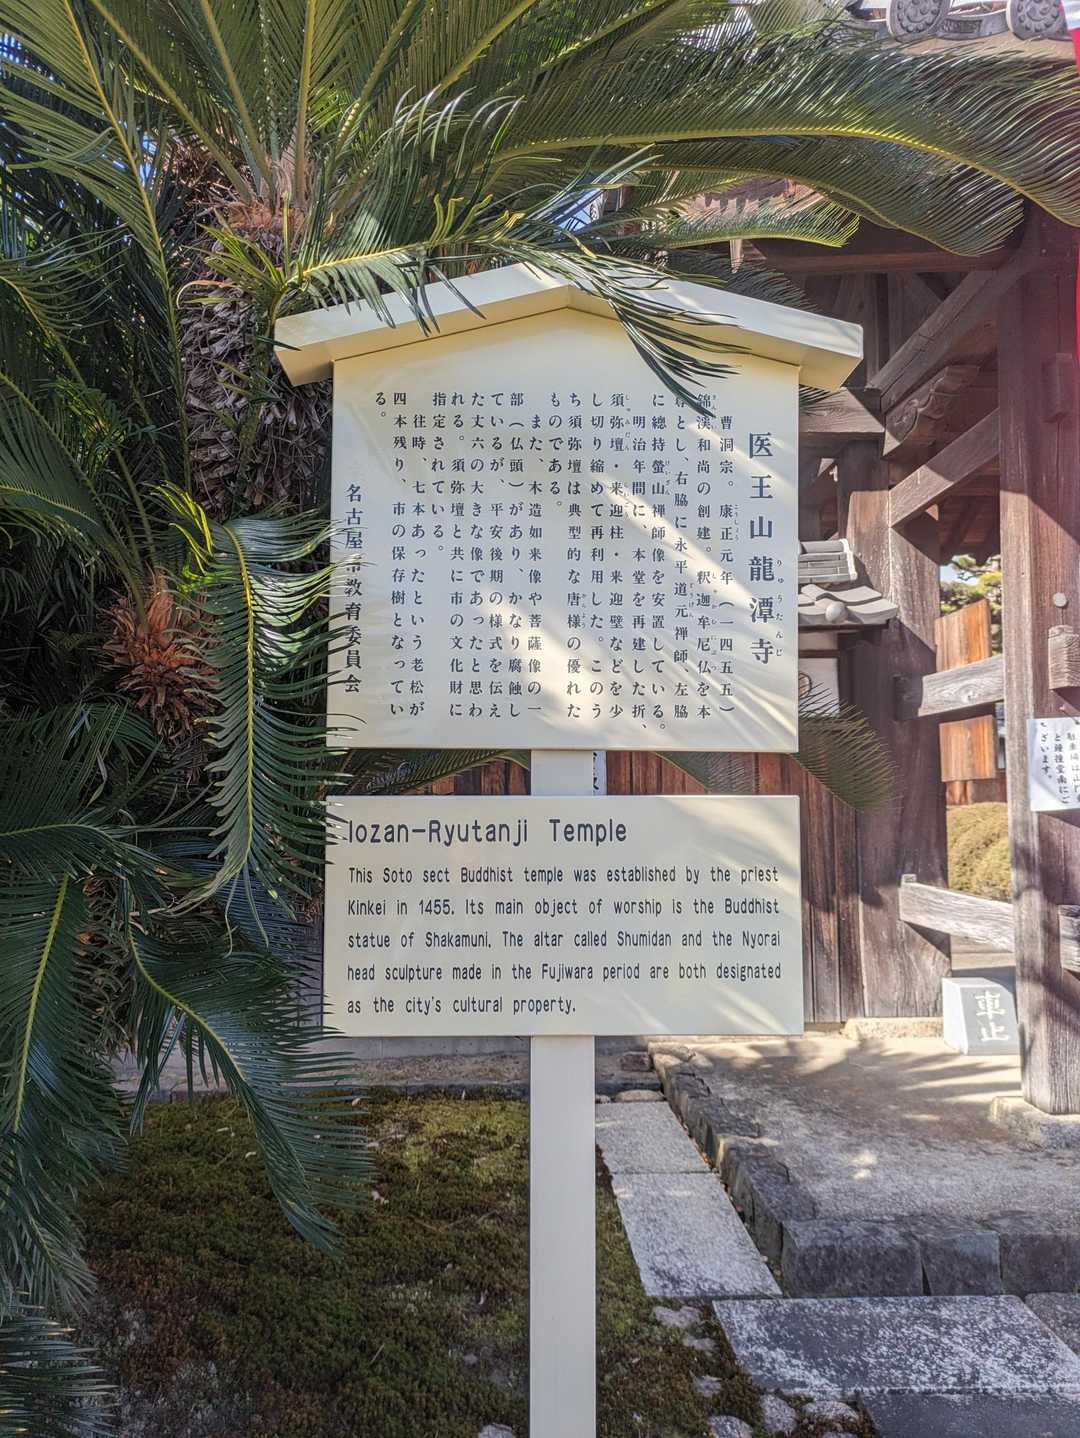 医王山龍潭寺
りゅうたんじ
曹洞宗。康正元年(一四五五)
錦渓和尚の創建。釈迦牟尼仏を本
尊とし、右脇に永平道元禅師、左脇
に總持螢山禅師像を安置している。
明治年間に、本堂を再建した折、
須弥壇・来迎柱・来迎壁などを少
し切り縮めて再利用した。このう
ち須弥壇は典型的な唐様の優れた
ものである。
また、木造如来像や菩薩像の一
部(仏頭)があり、かなり腐蝕し
ているが、平安後期の様式を伝え
た丈六の大きな像であったと思わ
れる。須弥壇と共に市の文化財に
指定されている。
往時、七本あったという老松が
四本残り、市の保存樹となってい
る。
名古屋市教育委員会
Iozan-Ryutanji Temple
This Soto sect Buddhist temple was established by the priest
Kinkei in 1455. Its main object of worship is the Buddhist
statue of Shakamuni. The altar called Shumidan and the Nyorai
head sculpture made in the Fujiwara period are both designated
as the city's cultural property.
駐車場は山門
と鐘撞堂南にご
ざいます。
車止